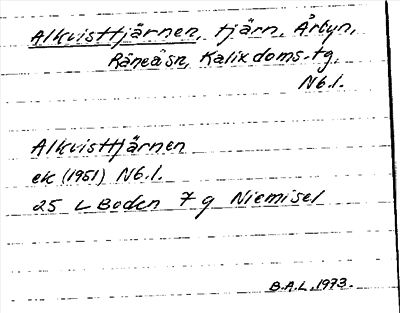 Alkvisttjärnen, tjärn, Årbyn,
Råneå sn, Kalix doms. tg,
Nb.l.
Alkvisttjärnen
ek (1951) Nb.l.
25 L Boden 7 g Niemisel
B.A.L. 1973.